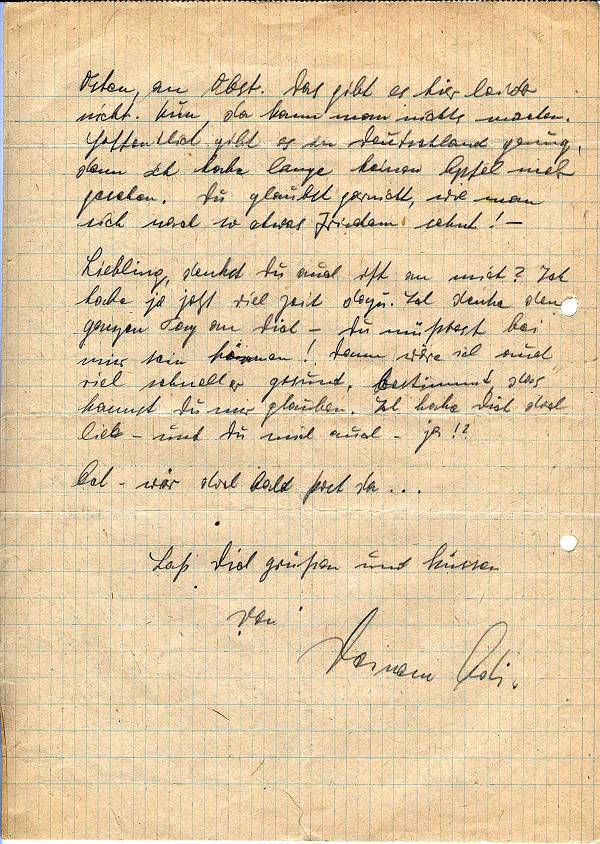 Osten, an Obst. Das gibt es hier leider
nicht. Nun, da kann man nichts machen.
Hoffentlich gibt es in Deutschland genug,
denn ich habe lange keinen Apfel mehr
gesehen. Du glaubst garnicht, wie man
sich nach so etwas sehnt! –
Liebling, denkst Du auch oft an mich? Ich
habe ja jetzt viel Zeit dazu. Ich denke den
ganzen Tag an Dich – Du müsstest bei
mir sein können! Dann wäre ich auch
viel schneller gesund, bestimmt, das
kannst Du mir glauben. Ich habe Dich doch
lieb – und Du mich auch – ja!?
Ach – wär doch bald Post da ...
Laß Dich grüßen und küssen
von
Deinem Adi.